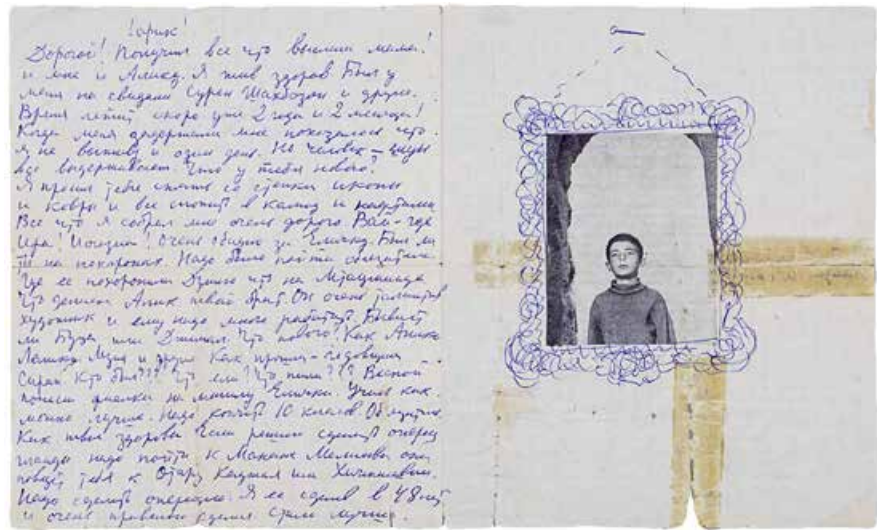 Гарик!
Дорогой! Получил все что выслали мама!
и мне и Алику. Я жив здоров Был у
меня на свидании Сурен Шахбазян и другие.
Время летит скоро уже 2 года и 2 месяца!
Когда меня задержали мне показалось что
я не выживу и один день. Но человек —
все выдерживает. Что у тебя нового?
Я просил тебя снять со стенки иконы
и ковры и все сложить в камод и
Все что я собрал мне очень дорого Вай-где
Ира! Очень обидно за Был ли
ты на похоронах. Надо было пойти обязательно.
Где ее похоронили Думаю что на Мтацминда
Что делает Алик твой брат. Он очень талантлив
художник и ему надо много работать. Бывает
ли или Что нового? Как
и другие Как прошла годовщина
Кто был??? Что ели? Что пили??? Весной
фиалки на могилу Учись как
можно лучше. Надо кончить 10 классов Обязательно
Как твое здоровье Если решили сделать операц
гланды надо пойти к Манане она
поведет тебя к Отару или
Надо сделать операцию. Я ее сделал в 48 лет
и очень правильно сделал. Стало лучше.